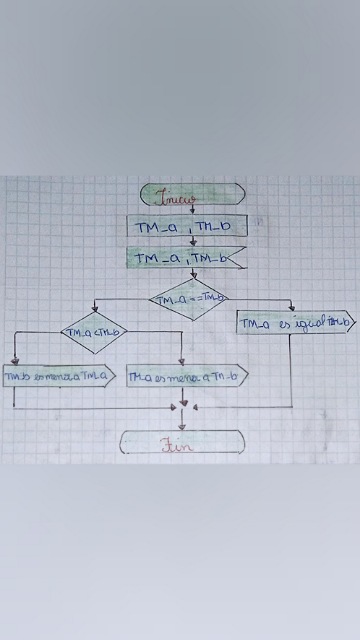 Inicio
TM_a , TM_b
TM_a , TM_b
TM_a == TM_b
TM_a < TM_b
TM_a es igual TM_b
TM_b es menor a TM_a
TM_a es menor a TM_b
Fin